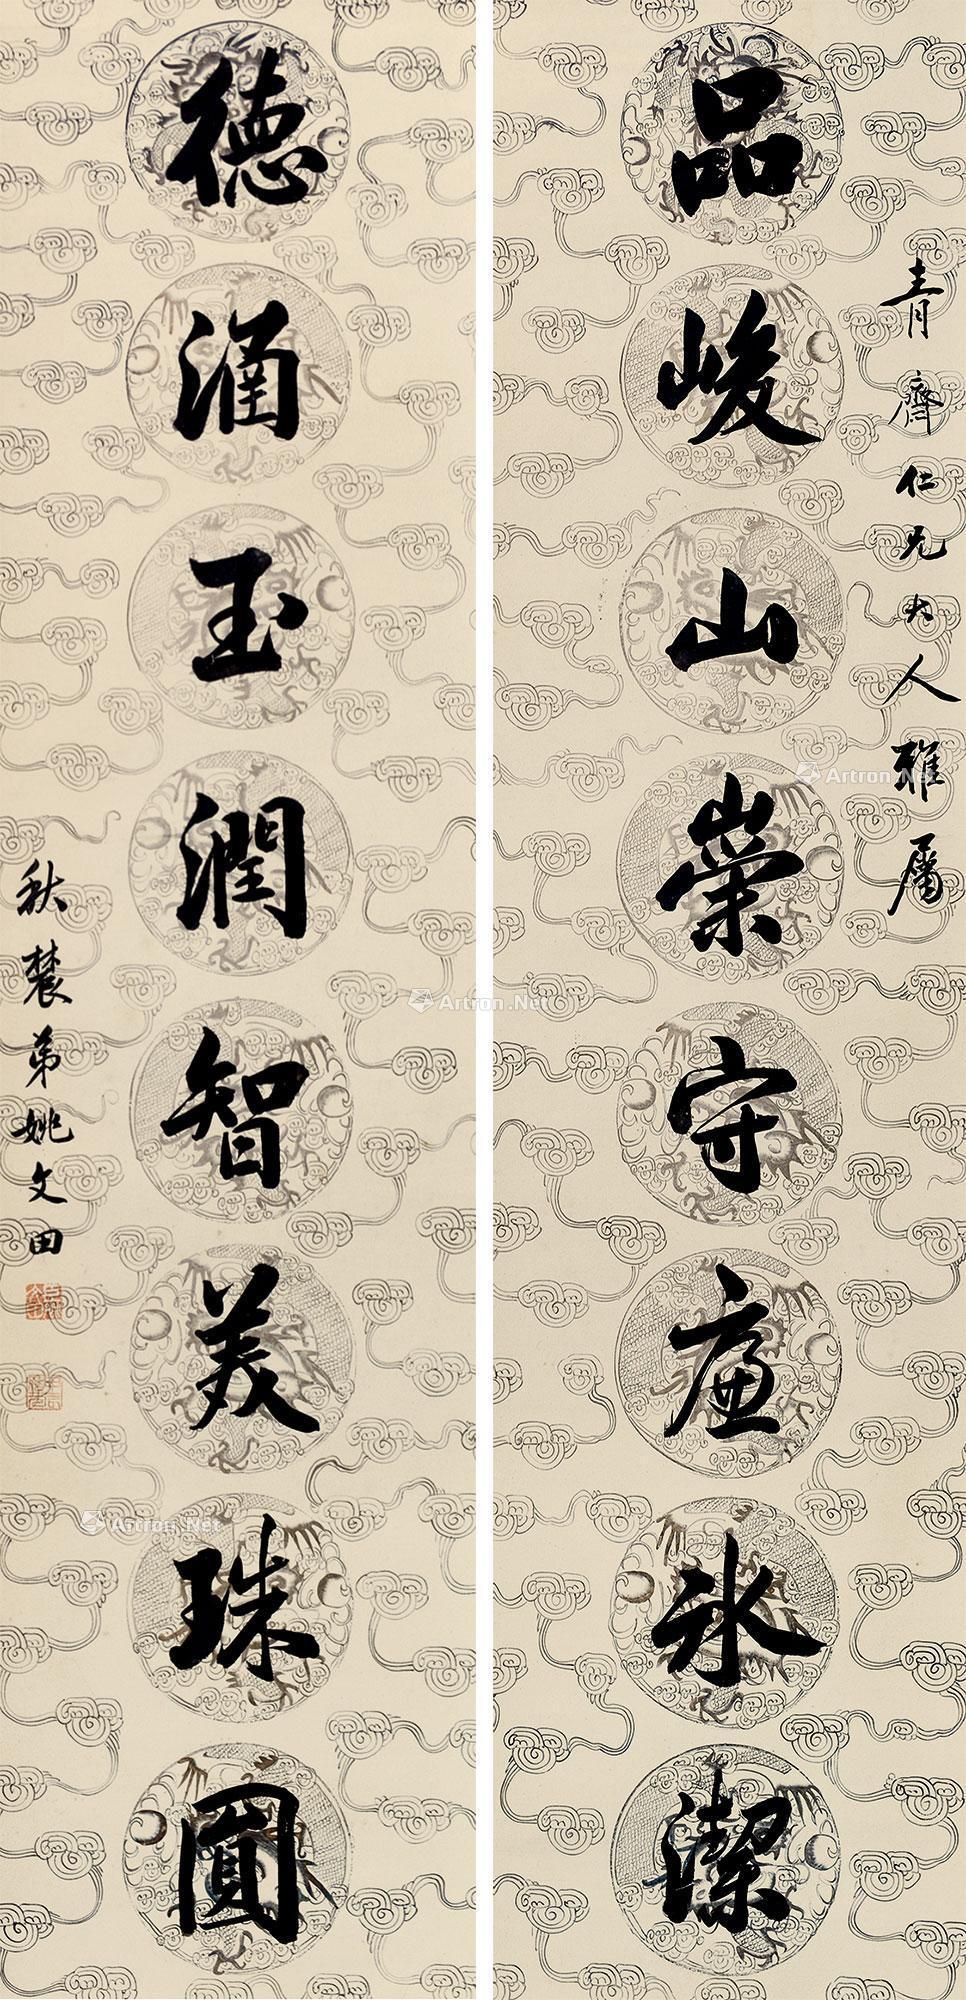 青齋仁兄大人雅屬
品峻山崇守廉冰潔
德涵玉潤智美珠圓
秋農弟姚文田
Artron.Net
Artron.Net
Artron.Net